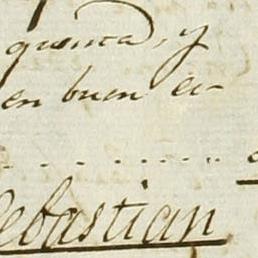 quenta, y
en buen es-
Sebastian